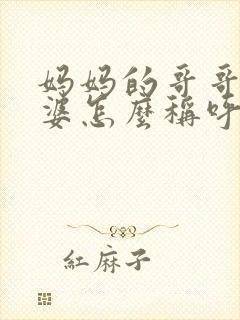 妈妈的哥哥
婆怎麼稱呼
紅麻子